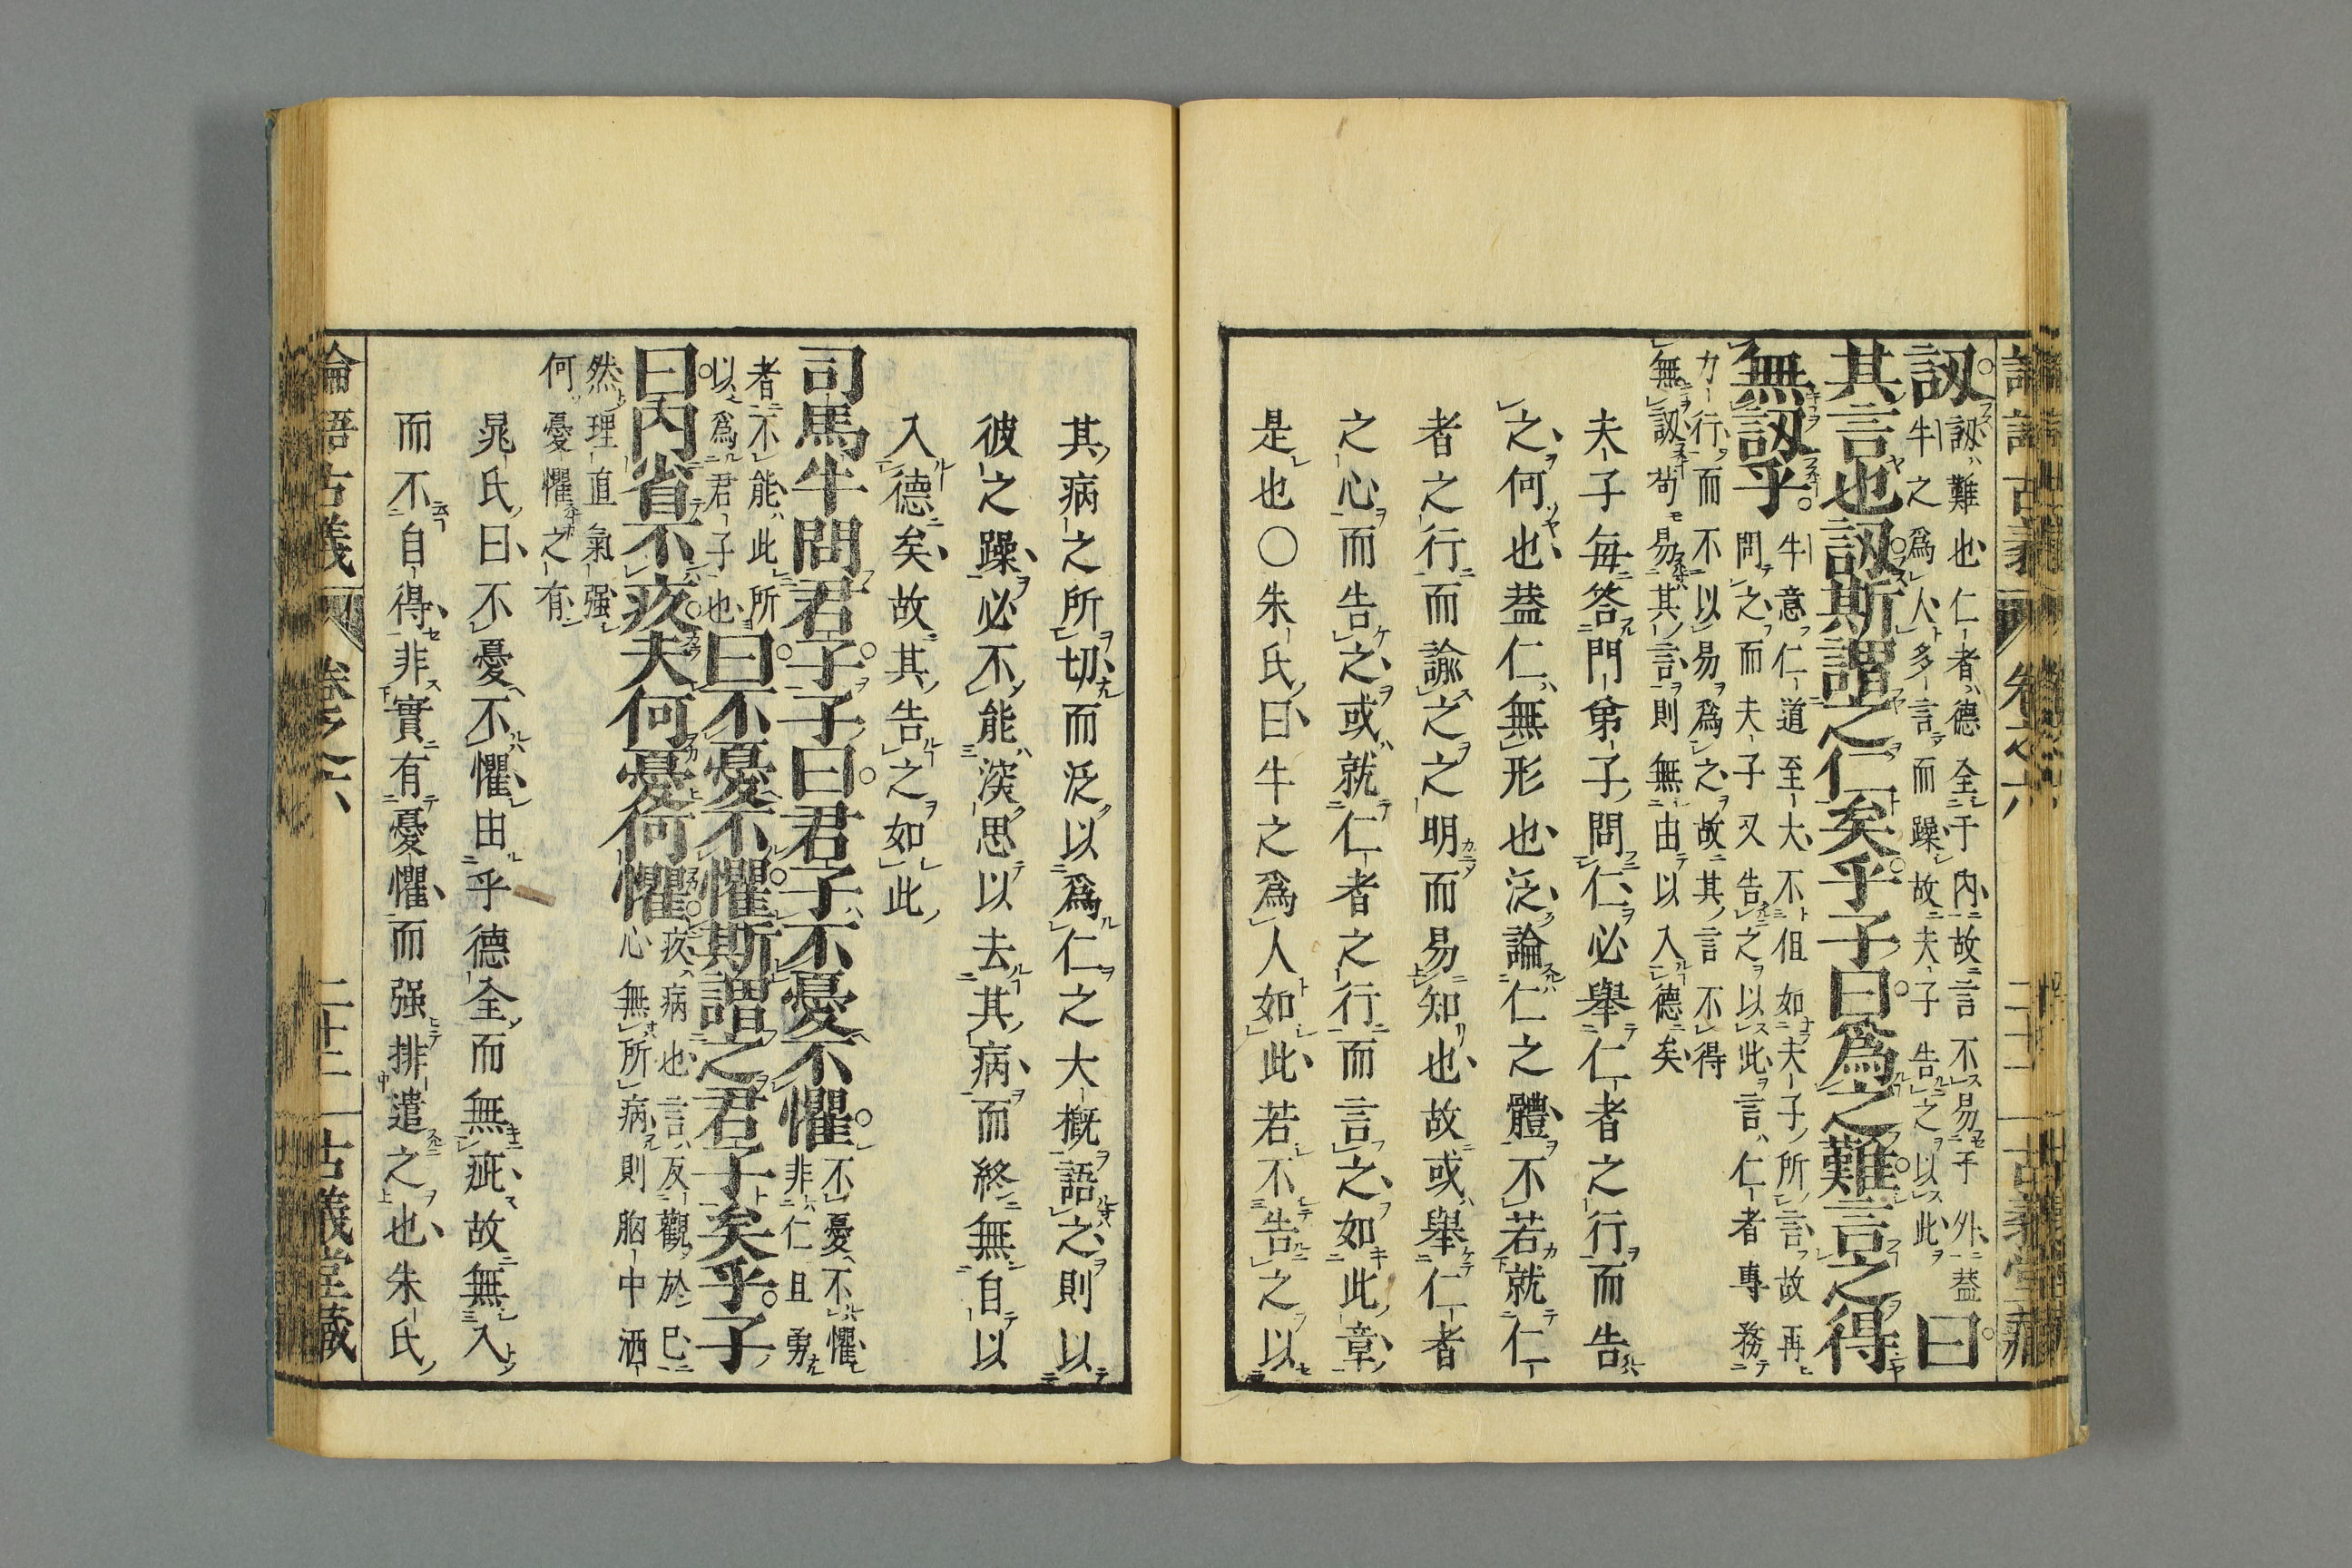 論語古義 卷之六 古義堂藏
訒
訒難也仁者德全于內故言不易乎外葢
牛之爲人多言而躁故夫子告之以此
曰
其言也訒斯謂之仁矣乎子曰爲之難言之得
無訒乎
牛意仁道至大不但如夫子所言故再
問之而夫子又告之以此言仁者專務
力行而不以易爲之故其言不得
無訒苟易其言則無由以入德矣
夫子每答門弟子問仁必舉仁者之行而告
之何也葢仁無形也泛論仁之體不若就仁
者之行而諭之之明而易知也故或舉仁者
之心而告之或就仁者之行而言之如此章
是也〇朱氏曰牛之爲人如此若不告之以
其病之所切而泛以爲仁之大概語之則以
彼之躁必不能深思以去其病而終無自以
入德矣故其告之如此
司馬牛問君子子曰君子不憂不懼
不憂不懼
非仁且勇
者不能此所
以爲君子也
曰不憂不懼斯謂之君子矣乎子
曰內省不疚夫何憂何懼
疚病也言反觀於已
心無所病則胸中洒
然理直氣强
何憂懼之有
晁氏曰不憂不懼由乎德全而無疵故無入
而不自得非實有憂懼而强排遣之也朱氏
論語古義 卷之六 二十二 古義堂藏